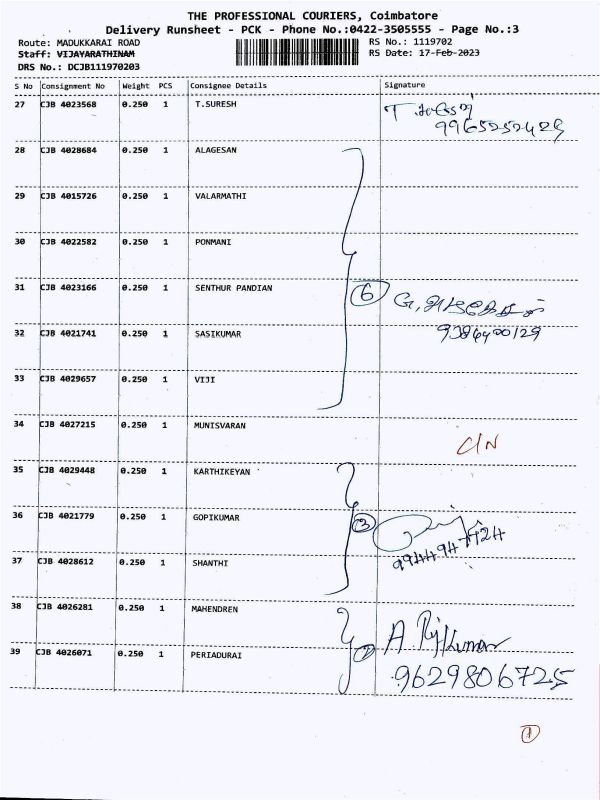 THE PROFESSIONAL COURIERS, Coimbatore
Delivery Runsheet - PCK - Phone No.:0422-3505555 - Page No.:3
Route: MADUKKARAI ROAD RS No.: 1119702
Staff: VIJAYARATHINAM RS Date: 17-Feb-2023
DRS No.: DCJB111970203
S No Consignment No Weight PCS Consignee Details Signature
27 CJB 4023568 0.250 1 T.SURESH
9965252429
28 CJB 4028684 0.250 1 ALAGESAN
29 CJB 4015726 0.250 1 VALARMATHI
30 CJB 4022582 0.250 1 PONMANI
31 CJB 4023166 0.250 1 SENTHUR PANDIAN 6
32 CJB 4021741 0.250 1 SASIKUMAR
33 CJB 4029657 0.250 1 VIJI
34 CJB 4027215 0.250 1 MUNISVARAN
C/N
35 CJB 4029448 0.250 1 KARTHIKEYAN
36 CJB 4021779 0.250 1 GOPIKUMAR 3
37 CJB 4028612 0.250 1 SHANTHI
38 CJB 4026281 0.250 1 MAHENDREN A. Rajkumar
39 CJB 4026071 0.250 1 PERIADURAI 2
9629806725
1